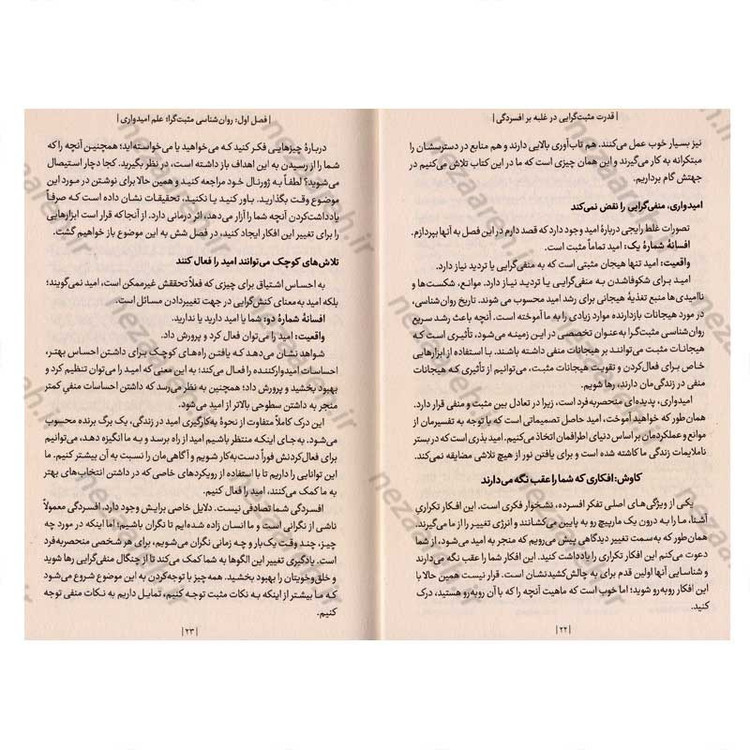 | قدرت مثبت‌گرایی در غلبه بر افسردگی |
نیز بسیار خوب عمل می‌کنند. هم تاب‌آوری بالایی دارند و هم منابع در دسترسشان را
مبتکرانه به کار می‌گیرند و این همان چیزی است که ما در این کتاب تلاش می‌کنیم در
جهتش گام برداریم.
امیدواری، منفی‌گرایی را نقض نمی‌کند
تصورات غلط رایجی دربارهٔ امید وجود دارد که قصد دارم در این فصل به آنها بپردازم.
افسانهٔ شمارهٔ یک: امید تماماً مثبت است.
واقعیت: امید تنها هیجان مثبتی است که به منفی‌گرایی یا تردید نیاز دارد.
امید برای شکوفاشدن به منفی‌گرایی یا تردید نیاز دارد. موانع، شکست‌ها و
ناامیدی‌ها منبع تغذیهٔ هیجانی برای رشد امید محسوب می شوند. تاریخ روان‌شناسی،
در مورد هیجانات بازدارنده موارد زیادی را به ما آموخته است. آنچه باعث رشد سریع
روان‌شناسی مثبت‌گرا به‌عنوان تخصصی در این زمینه می‌شود، تأثیری است که
هیجانات مثبت می‌توانند بر هیجانات منفی داشته باشند. با استفاده از ابزارهایی
خاص برای فعال‌کردن و تقویت هیجانات مثبت، می‌توانیم از تأثیری که هیجانات
منفی در زندگی‌مان دارند، رها شویم.
امیدواری، پدیده‌ای منحصربه‌فرد است، زیرا در تعادل بین مثبت و منفی قرار دارد.
همان‌طور که خواهید آموخت، امید حاصل تصمیماتی است که با توجه به تفسیرمان از
موانع و عملکردمان بر اساس دنیای اطرافمان اتخاذ می‌کنیم. امید بذری است که در بستر
ناملایمات زندگی ما کاشته شده است و برای یافتن نور از هیچ تلاشی مضایقه نمی‌کند.
کاوش: افکاری که شما را عقب نگه می‌دارند
یکی از ویژگی‌های اصلی تفکر افسرده، نشخوار فکری است. این افکار تکراریِ
آشنا، ما را به درون یک مارپیچ رو به پایین می‌کشانند و انرژی تغییر را از ما می‌گیرند.
همان‌طور که به‌سمت تغییر دیدگاهی پیش می‌رویم که منجر به امید می‌شود، از شما
دعوت می‌کنم این افکار تکراری را یادداشت کنید. این افکار شما را عقب نگه می‌دارند
و شناسایی آنها اولین قدم برای به چالش‌کشیدنشان است. قرار نیست همین حالا با
این افکار روبه‌رو شوید؛ اما خوب است که ماهیت آنچه را که با آن روبه‌رو هستید، درک
کنید.
| ۲۲ |
| فصل اول: روان‌شناسی مثبت‌گرا؛ علم امیدواری |
دربارهٔ چیزهایی فکر کنید که می‌خواهید یا می‌خواسته‌اید؛ همچنین آنچه را که
شما را از رسیدن به این اهداف باز داشته است، در نظر بگیرید. کجا دچار استیصال
می‌شوید؟ لطفاً به ژورنال خود مراجعه کنید و همین حالا برای نوشتن در مورد این
موضوع وقت بگذارید. باور کنید یا نکنید، تحقیقات نشان داده است که صرفاً
یادداشت‌کردن آنچه شما را آزار می‌دهد، اثر درمانی دارد. از آنجا که قرار است ابزارهایی
را برای تغییر این افکار ایجاد کنید، در فصل شش به این موضوع باز خواهیم گشت.
تلاش‌های کوچک می‌توانند امید را فعال کنند
به احساس اشتیاق برای چیزی که فعلاً تحققش غیرممکن است، امید نمی‌گویند؛
بلکه امید به‌معنای کنش‌گرایی در جهت تغییردادن مسائل است.
افسانهٔ شمارهٔ دو: شما یا امید دارید یا ندارید.
واقعیت: امید را می‌توان فعال کرد و پرورش داد.
شواهد نشان می‌دهد که یافتن راه‌های کوچک برای داشتن احساس بهتر،
احساسات امیدوارکننده را فعال می‌کند؛ به این معنی که امید را می‌توان تنظیم کرد و
بهبود بخشید و پرورش داد؛ همچنین به نظر می‌رسد که داشتن احساسات منفیِ کمتر
منجر به داشتن سطوحی بالاتر از امید می‌شود.
این درک کاملاً متفاوت از نحوهٔ به‌کارگیری امید در زندگی، یک برگ برنده محسوب
می‌شود. به‌جای اینکه منتظر باشیم امید از راه برسد و به ما انگیزه دهد، می‌توانیم
برای فعال‌کردنش فوراً دست‌به‌کار شویم و آگاهی‌مان را نسبت به آن بیشتر کنیم. ما
این توانایی را داریم تا با استفاده از رویکردهای خاصی که در داشتن انتخاب‌های بهتر
به ما کمک می‌کنند، امید را فعال کنیم.
افسردگی شما تصادفی نیست. دلایل خاصی برایش وجود دارد. افسردگی معمولاً
ناشی از نگرانی است و ما انسان زاده شده‌ایم تا نگران باشیم؛ اما اینکه در مورد چه
چیز، چند وقت یک‌بار و چه زمانی نگران می‌شویم، برای هر شخصی منحصربه‌فرد
است. یادگیری تغییر این الگوها به شما کمک می‌کند تا از چنگال منفی‌گرایی رها شوید
و خلق‌وخویتان را بهبود بخشید. همه‌چیز با توجه‌کردن به این موضوع شروع می‌شود
که ما بیشتر از اینکه به نکات مثبت توجه کنیم، تمایل داریم به نکات منفی توجه
کنیم.
| ۲۳ |
nezaareh.ir